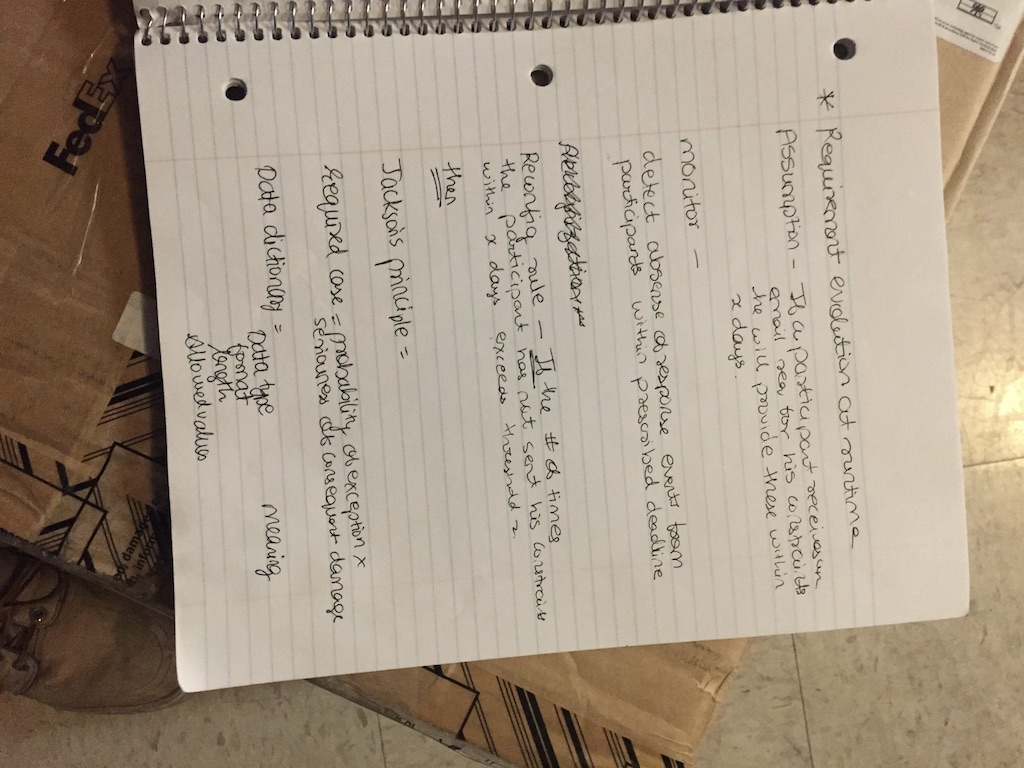 * Requirement evolution at runtime
Assumption - If a participant receives an
email req for his constraints
he will provide these within
x days.
monitor -
detect absense of response event from
participants within prescribed deadline
Reconfig rule - If the # of times
the participant has not sent his constraints
within x days exceeds threshold z
then
Jackson's principle =
Required case = probability of exception x
seriousness of consequent damage
Data dictionary = Data type meaning
format
length
allowed values
FedEx